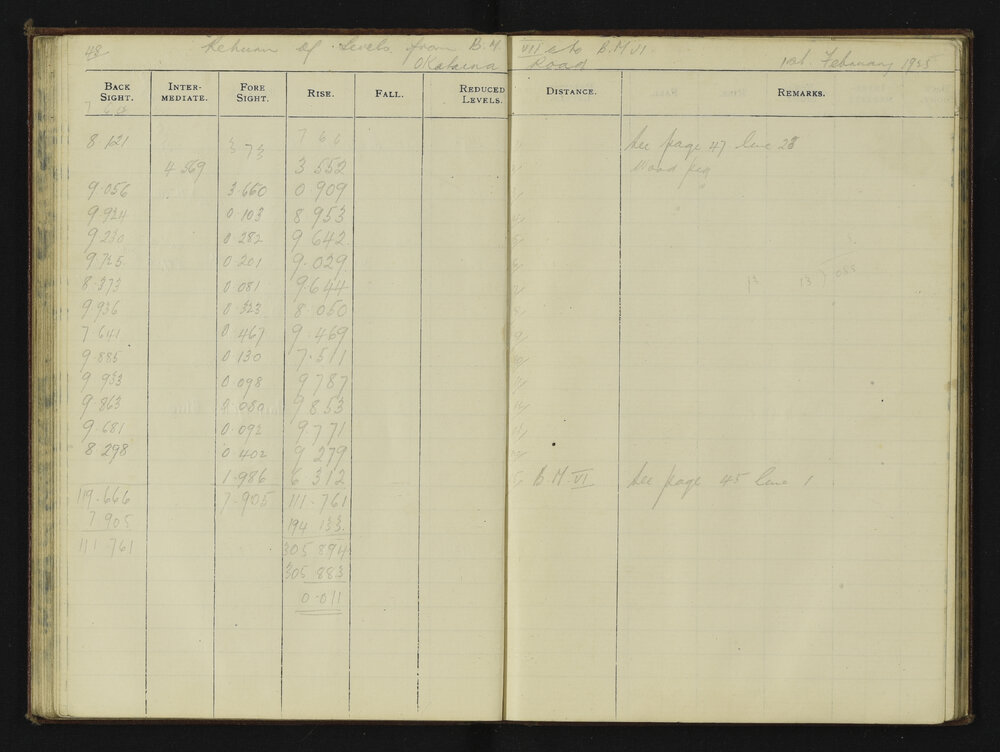 48 Return of Levels from B.M. VII to B.M VI
Okataina Road 1st. February 1935
BACK SIGHT. INTER-MEDIATE. FORE SIGHT. RISE. FALL. REDUCED LEVELS. DISTANCE. REMARKS.
8 121 See page 47 line 28
4 569 3 552 Wood peg
9.056 3.660 0 909
9 924 0.103 8 953
9 230 0.282 9 642
9 725 0.201 9.029
8.373 0.081 9.644
9.936 0.323 8.050
7 641 0.467 9.469
9.885 0.130 7.511
9 933 0.098 9787
9.863 0.080 9853
9.681 0.092 9.771
8 298 0.402 9 279
1.986 6 312 B.M.VI See page 45 line 1
119.666 7.905 111.761
7 905 194 133
111.761 305 894
305 883
0.011